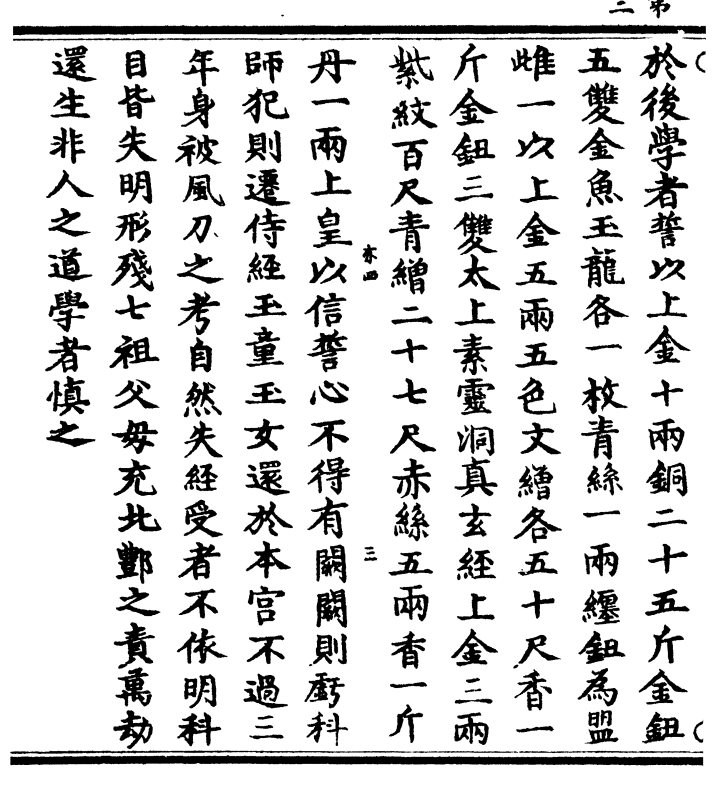 弟二
於後學者誓以上金十兩銅二十五斤金鈕
五雙金魚玉龍各一枚青絲一兩纏鈕為盟
雌一以上金五兩五色文繒各五十尺香一
斤金鈕三雙太上素靈洞真玄經上金三兩
紫紋百尺青繒二十七尺赤絲五兩香一斤
亦四
三
丹一兩上皇以信誓心不得有闕闕則虧科
師犯則遷侍經玉童玉女還於本宮不過三
年身被風刀之考自然失經受者不依明科
目皆失明形殘七祖父毋充北酆之責萬劫
還生非人之道學者慎之